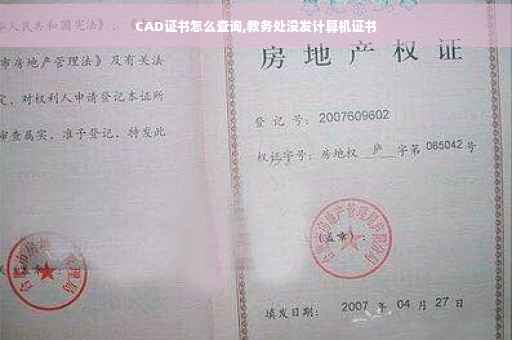 CAD证书怎么查询,教务处没发计算机证书
人民共和国宪法》
市房地产管理法》及有关法
定，对权利人申请登记本证所
审查属实，准予登记，特发此
房地产权证
登记号：2007609602
权证字号：房地权 庐 字第 085042 号
(盖章)：
房地产管理局
填发日期：2007 年 04 月 27 日